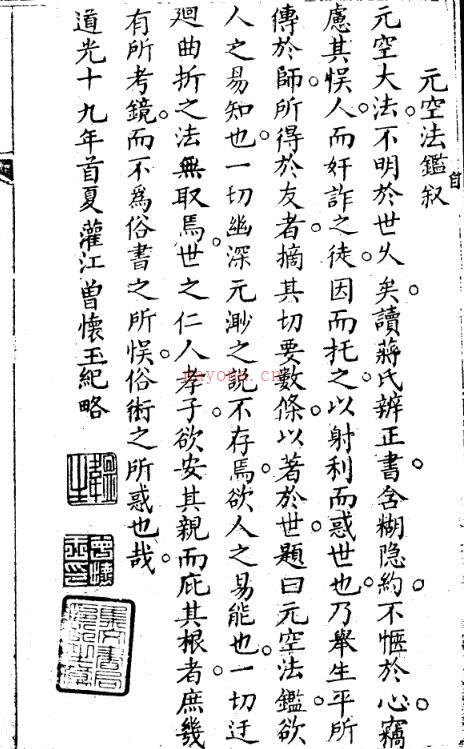 元空法鑑叙
元空大法不明於世久矣讀蔣氏辨正書含糊隐約不愜於心竊
慮其悮人而奸詐之徒因而托之以射利而惑世也乃舉生平所
傳於師所得於友者摘其切要數條以著於世題曰元空法鑑欲
人之易知也一切幽深元渺之說不存焉欲人之易能也一切迂
廻曲折之法無取焉世之仁人孝子欲安其親而庇其根者庶幾
有所考鏡而不爲俗書之所悮俗術之所惑也哉
道光十九年首夏灌江曽懷玉紀略
nayona.cn